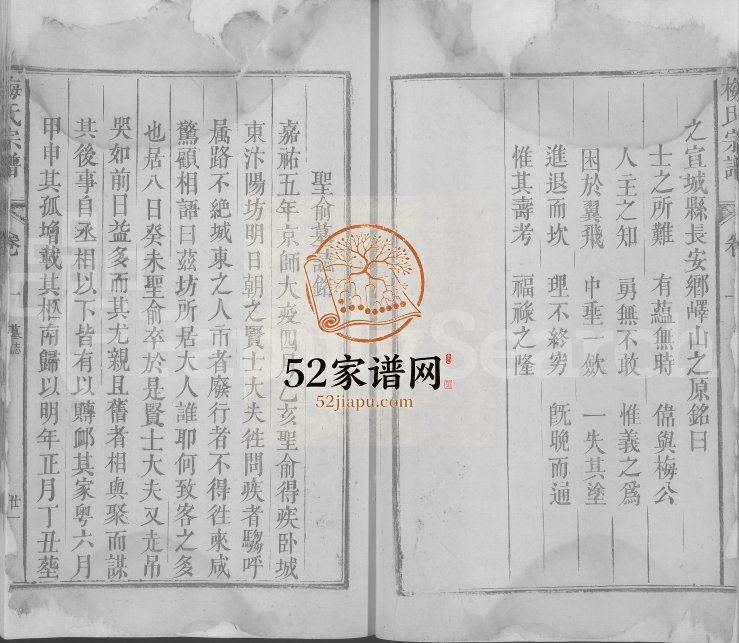 之宣城縣長安鄉嶧山之原銘曰
士之所難 有蘊無時 偹與梅公
人主之知 勇無不敢 惟義之爲
困於翼飛 中垂一歛 一失其塗
進退而坎 理不終窮 旣晚而通
惟其壽考 福祿之隆
梅氏宗譜 卷一 墓誌 廿一
聖俞墓誌銘
嘉祐五年京師大疫四月乙亥聖俞得疾卧城
東汴陽坊明日朝之賢士大夫徃問疾者騶呼
屬路不絶城東之人市者廢行者不得徃來咸
驚顧相語曰兹坊所居大人誰耶何致客之多
也居八日癸未聖俞卒於是賢士大夫又走吊
哭如前日益多而其尤親且舊者相與聚而謀
其後事自丞相以下皆有以賻䘏其家粤六月
甲申其孤增載其柩南歸以明年正月丁丑塟
52家谱网
52jiapu.com